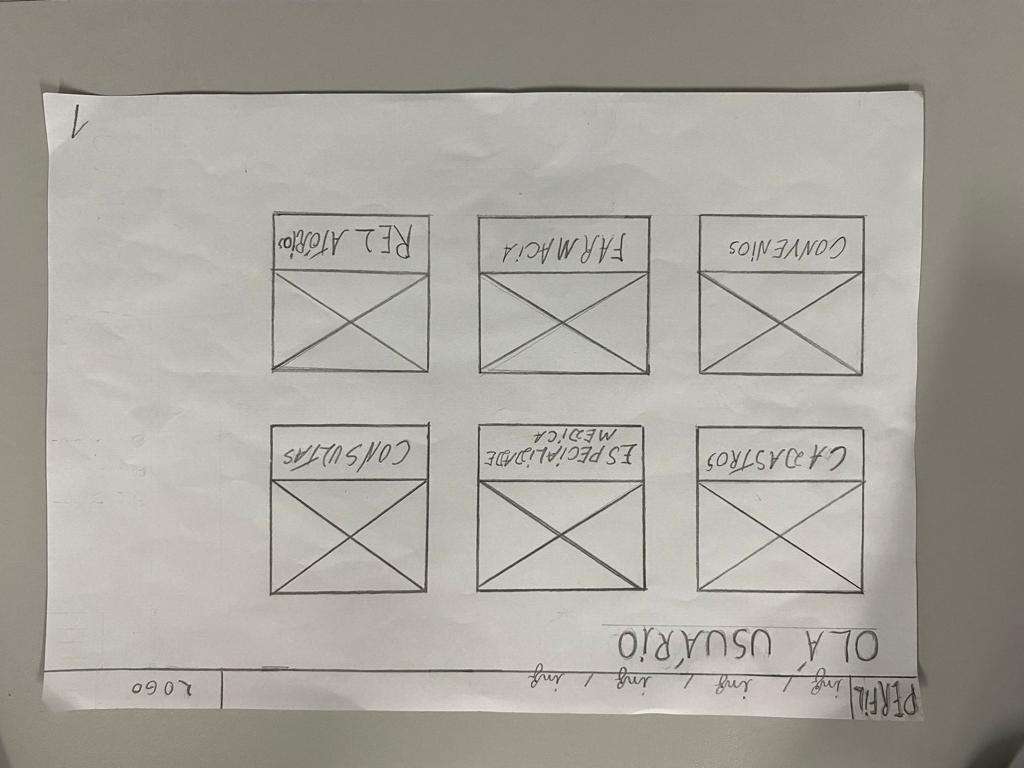 PERFIL inf / inf / inf / inf LOGO
OLÁ USUÁRIO
CADASTROS
ESPECIALIDADE
MEDICA
CONSULTAS
CONVENIOS
FARMACIA
RELATÓRIOS
1